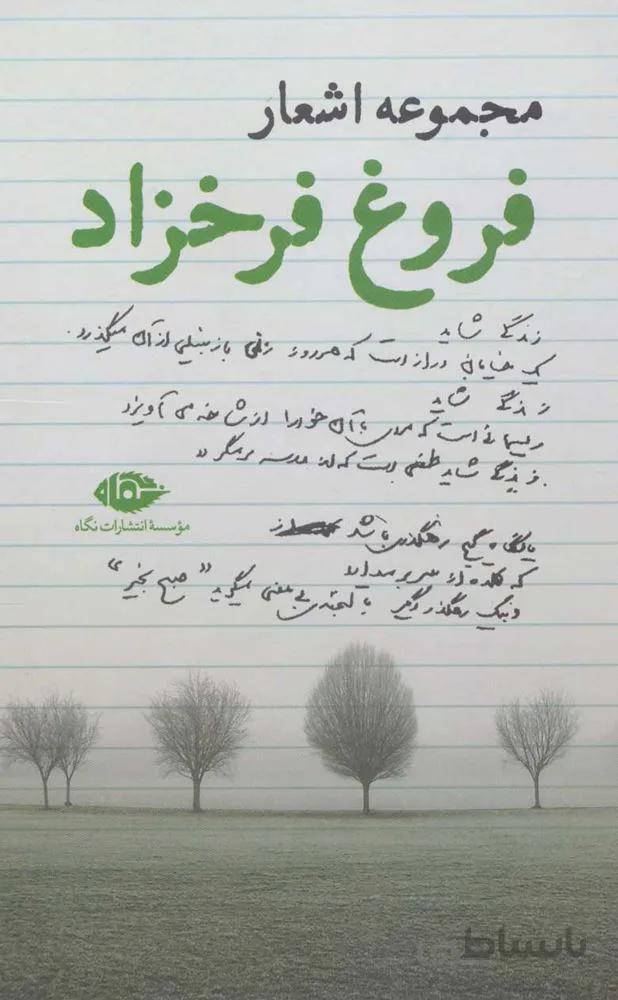 مجموعه اشعار
فروغ فرخزاد
زندگی شاید
یک خیابان درازست که هر روز زنی با زنبیلی از آن میگذرد.
زندگی شاید
ریسمانی است که مردی با آن خود را از شاخه می آویزد
زندگی شاید طفلی است که از مدرسه بر میگردد
نگاه
مؤسسهٔ انتشارات نگاه
یا گیج رهگذری باشد
که کلاه از سر بر میدارد
و بیک رهگذر دیگر با لبخندی بی معنی میگوید "صبح بخیر"
بابساط